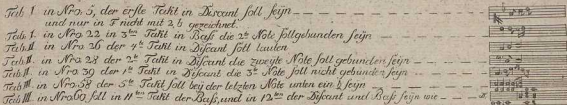 Tab I. in Nro. 5, der erste Takt in Discant soll seijn
und nur in F nicht mit 2 b gezeichnet.
Tab I. in Nro 22 in 3ten Takt in Bass die 2te Note soll gebunden seijn
Tab II. in Nro 26 der 4te Takt in Discant soll lauten
Tab II. in Nro 28 der 2te Takt in Discant die zweijte Note soll gebunden seijn
Tab II. in Nro. 39 der 1te Takt in Discant die 3te Note soll nicht gebunden seijn
Tab III. in Nro. 58 der 5te Takt soll beij der letzten Note unten ein b seijn
Tab III. in Nro 69 soll in 11ten Takt der Bass, und in 12ten der Discant und Bass seijn wie